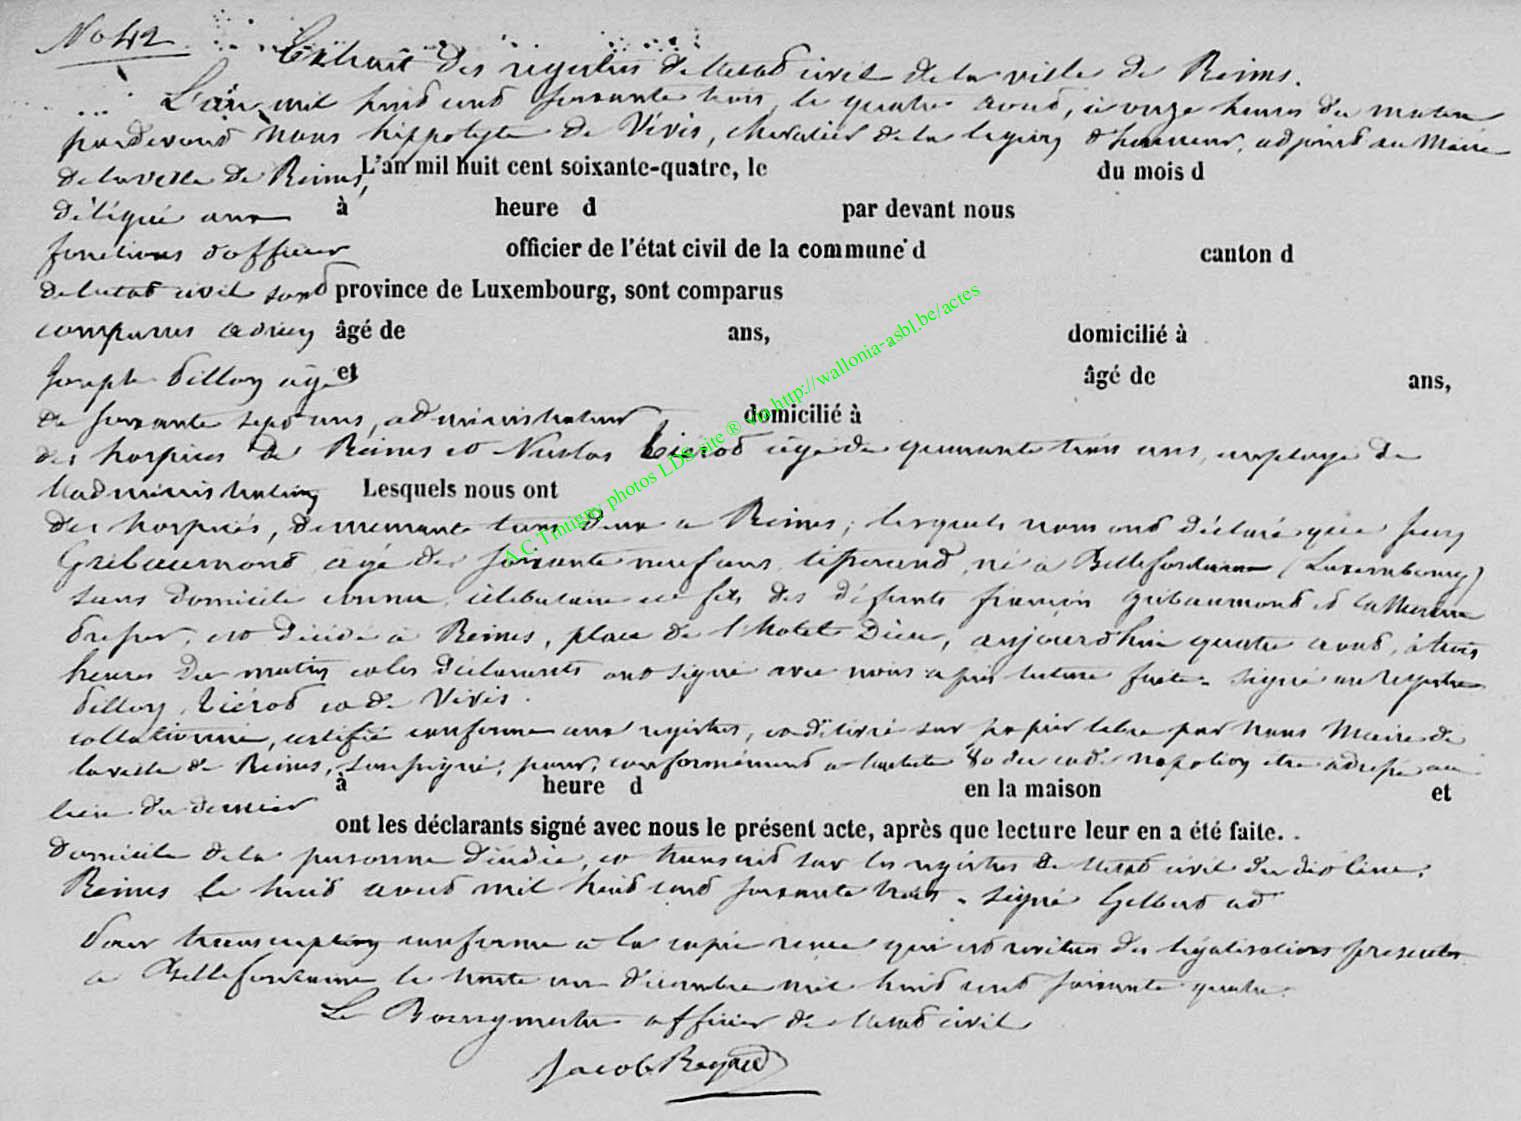 No 42
Extrait des registres de l'etat civil de la ville de Reims.
L'an mil huit cent soixante trois, le quatre aout, à onze heures du matin
pardevant nous hippolyte de Vivis, chevalier de la legion d'honneur, adjoint au Maire
de la ville de Reims, L'an mil huit cent soixante-quatre, le du mois d
délégué aux à heure d par devant nous
fonctions d'officier officier de l'état civil de la commune d canton d
de l'etat civil sont province de Luxembourg, sont comparus
comparus adrien âgé de ans, domicilié à
Joseph dillon agé et âgé de ans,
de soixante sept ans, administrateur domicilié à
des hospices de Reims et Nicolas agé de quarante trois ans, employé de
l'administration Lesquels nous ont
des hospices, demeurants tous deux a Reims, lesquels nous ont déclaré que Jean
Gribaumont agé de soixante neuf ans, tisserand, né a Bellefontaine (Luxembourg)
sans domicile connu, célibataire et fils des défunts françois gribaumont et Catherine
est décédé à Reims, place de l'hotel Dieu, aujourd'hui quatre aout, à trois
heures du matin et les déclarants ont signé avec nous après lecture faite. signé au registre
dillon, et de Vivis.
collationné, certifié conforme aux registres, et délivré sur papier libre par nous Maire de
la ville de Reims, soussigné, pour, conformément a l'article 80 du code napoléon etre adressé au
lieu du dernier à heure d en la maison et
ont les déclarants signé avec nous le présent acte, après que lecture leur en a été faite.
domicile de la personne décédée, et transcrit sur les registres de l'etat civil du dit lieu.
Reims le huit aout mil huit cent soixante trois. signé Gilbert ad
Pour transcription conforme a la copie recue qui est revetue des légalisations prescrites
a Bellefontaine le trente un décembre mil huit cent soixante quatre.
Le Bourgmestre officier de l'etat civil
Jacob
A.C. Tintigny photos LDS site ® via http://wallonia-asbl.be/actes